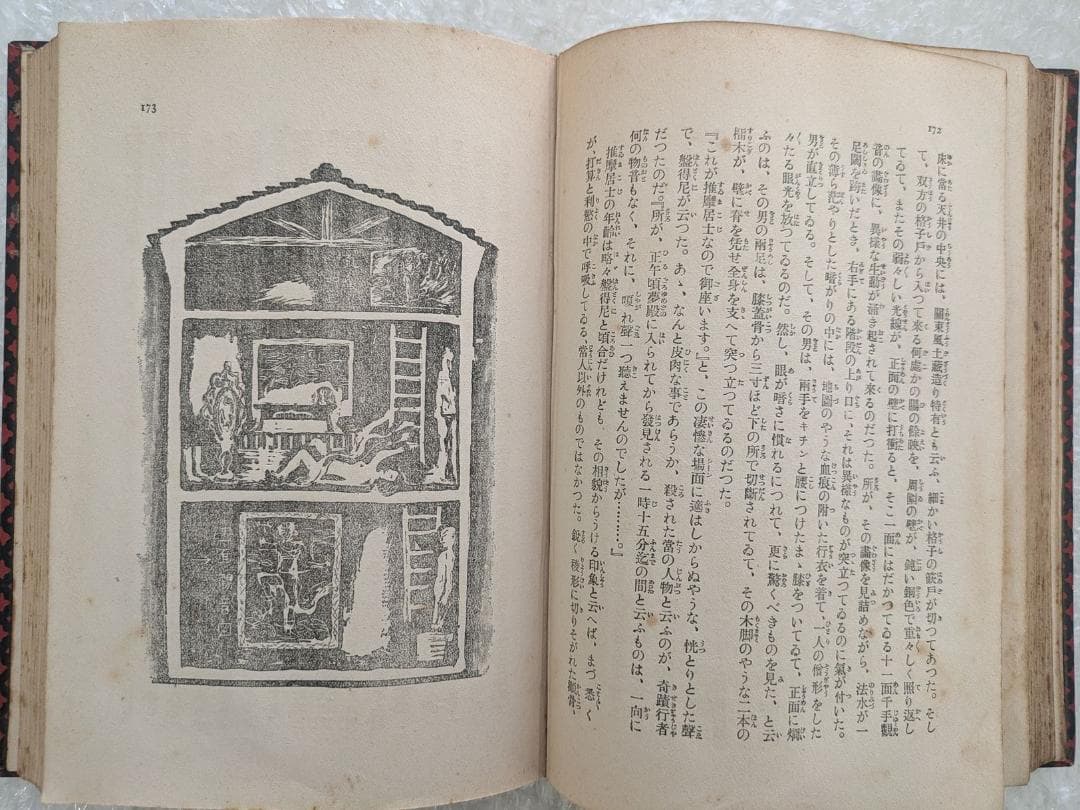 172
床に當る天井の中央には、關東風土藏造り特有とも云ふ、細かい格子の嵌戸が切つてあつた。そし
て、双方の格子戸から入つて來る何處かの陽の餘映を、周圍の壁が、鈍い銅色で重々しく照り返し
てゐて、またその弱々しい光線が、正面の壁に打衝ると、そこ一面にはだかつてゐる十一面千手觀
音の畫像に、異樣な生動が湧き起されて來るのだつた。所が、その畫像を見詰めながら、法水が一
足閾を跨いだとき、右手にある階段の上り口に、それは異樣なものが突立つてゐるのに氣が付いた。
その薄ら茫やりとした暗がりの中には、地圖のやうな血痕の附いた行衣を着て、一人の僧形をした
男が直立してゐる。そして、その男は、兩手をキチンと腰につけたまゝ膝をついてゐて、正面に爛
々たる眼光を放つてゐるのだ。然し、眼が暗さに慣れるにつれて、更に驚くべきものを見た、と云
ふのは、その男の兩足は、膝蓋骨から三寸ほど下の所で切斷されてゐて、その木脚のやうな二本の
木が、壁に脊を凭せ全身を支へて突つ立つてゐるのだつた。
『これが推摩居士なので御座います。』と、この凄慘な場面に適はしからぬやうな、恍とりとした聲
で、盤得尼が云つた。あゝ、なんと皮肉な事であらうか、殺された當の人物と云ふのが、奇蹟行者
だつたのだ。『所が、正午頃夢殿に入られてから發見される一時十五分迄の間と云ふものは、一向に
何の物音もなく、それに、嗄れ聲一つ聽えませんのでしたが………。』
推摩居士の年齡は略々盤得尼と頃合だけれども、その相貌からうける印象と云へば、まづ恐く
が、打算と利慾の中で呼吸してゐる、常人以外のものではなかつた。銳く稜形に切りそがれた顴骨、
173